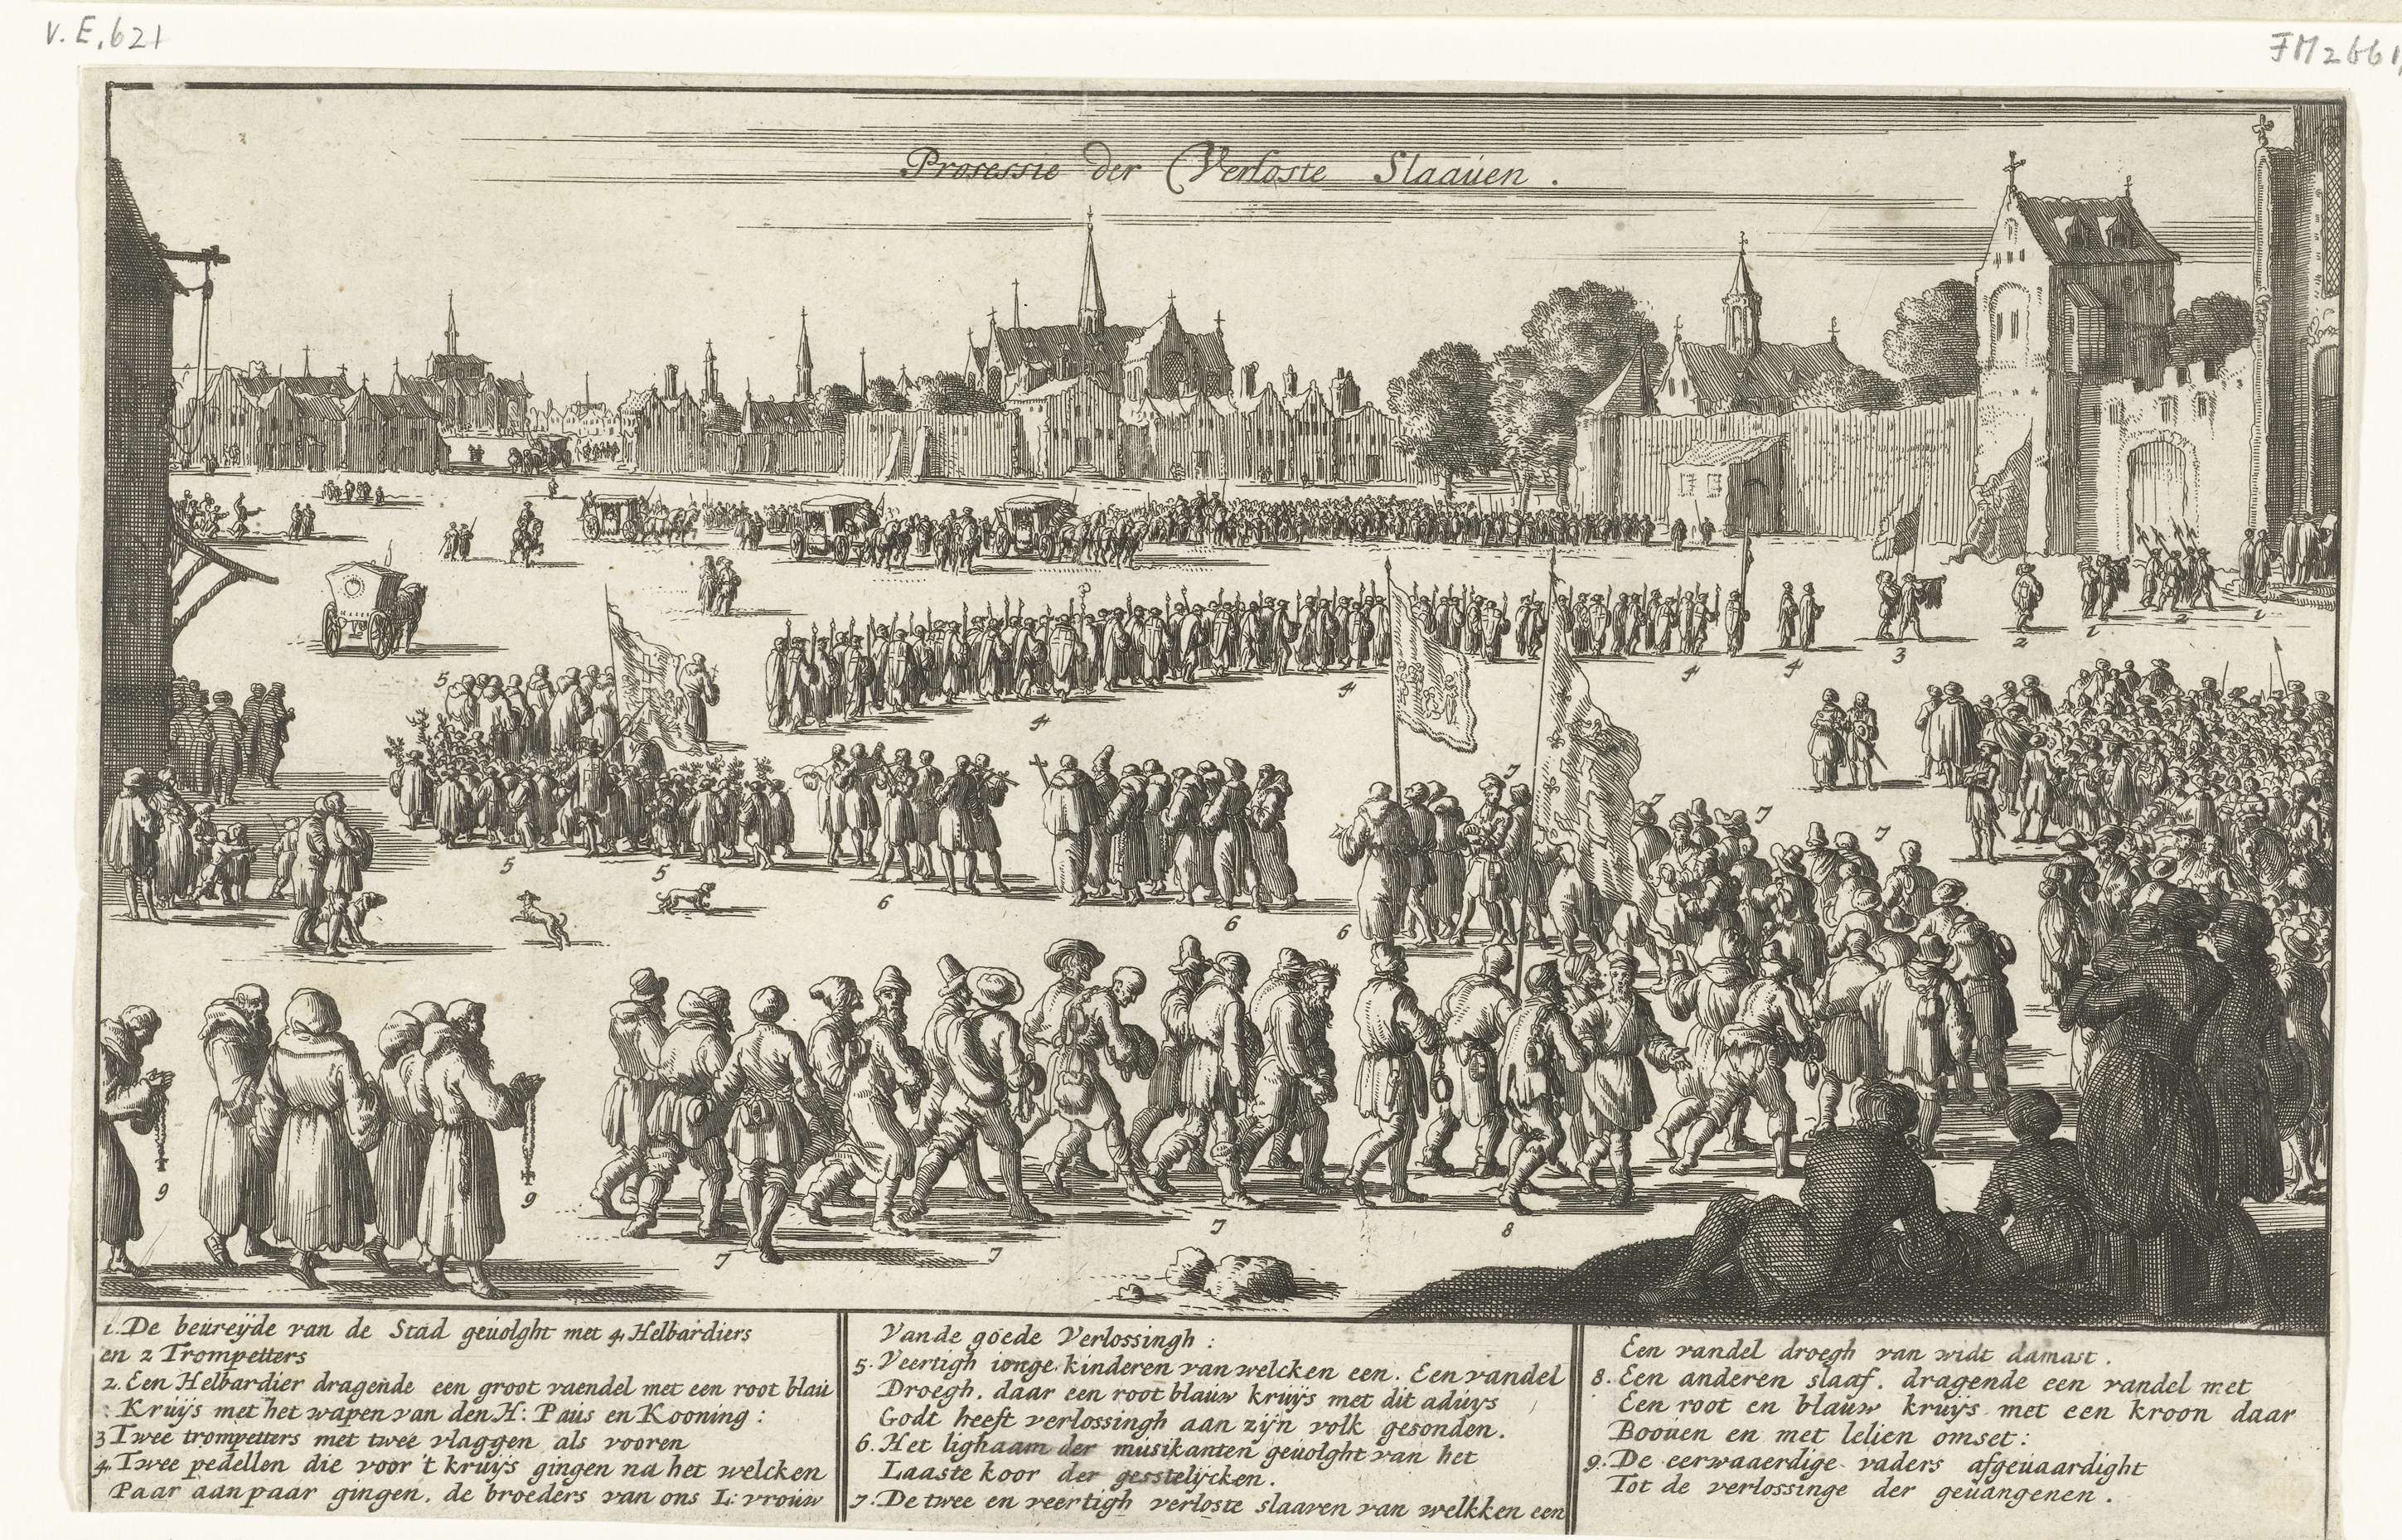 V. E. 621
FM 2661
Prosessie der Verloste Slaaúen.
3
2
1
2
1
4
4
4
4
3
5
5
5
6
6
6
7
7
7
9
9
7
7
7
8
1. De beúreÿde van de Stad geúolght met 4 Helbardiers
en 2 Trompetters
2. Een Helbardier dragende een groot vaendel met een root blaú
: Krúÿs met het wapen van den H: Paús en Kooning :
3 Twee trompetters met twee vlaggen als vooren
4. Twee pedellen die voor 't krúÿs gingen na het welcken
Paar aan paar gingen. de broeders van ons L: vroúw
Vande goede Verlossingh :
5. Veertigh ionge kinderen van welcken een. Een vandel
Droegh. daar een root blaúw krúÿs met dit adúÿs
Godt heeft verlossingh aan zÿn volk gesonden.
6. Het lighaam der musikanten geúolght van het
Laaste koor der gesstelÿcken.
7. De twee en veertigh verloste slaaven van welkken een
Een vandel droegh van widt damast.
8. Een anderen slaaf. dragende een vandel met
Een root en blaúw krúÿs met een kroon daar
Booúen en met lelien omset :
9. De eerwaaerdige vaders afgeúaardight
Tot de verlossinge der geúangenen.